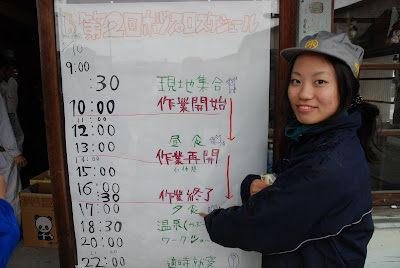 第2回ボラバロスケジュール
10
9:00
:30 現地集合
10:00 作業開始
11:00
12:00 昼食
13:00 作業再開
15:00
16:00
:30 作業終了
17:00 夕食
18:30 温泉
20:00 ワーク
22:00 随時就寝